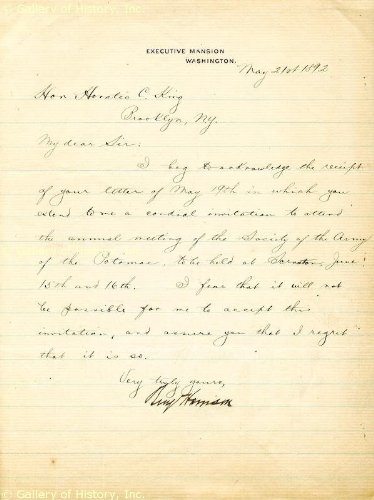 © Gallery of History, Inc.
EXECUTIVE MANSION
WASHINGTON.
May 21st 1892
Hon Horatio C. King
Brooklyn, Ny.
My dear Sir:
I beg to acknowledge the receipt
of your letter of May 19th in which you
extend to me a cordial invitation to attend
the annual meeting of the Society of the Army
of the Potomac, to be held at June
15th and 16th. I fear that it will not
be possible for me to accept this
invitation, and assure you that I regret
that it is so.
Very truly yours,
Benj Harrison
© Gallery of History, Inc.